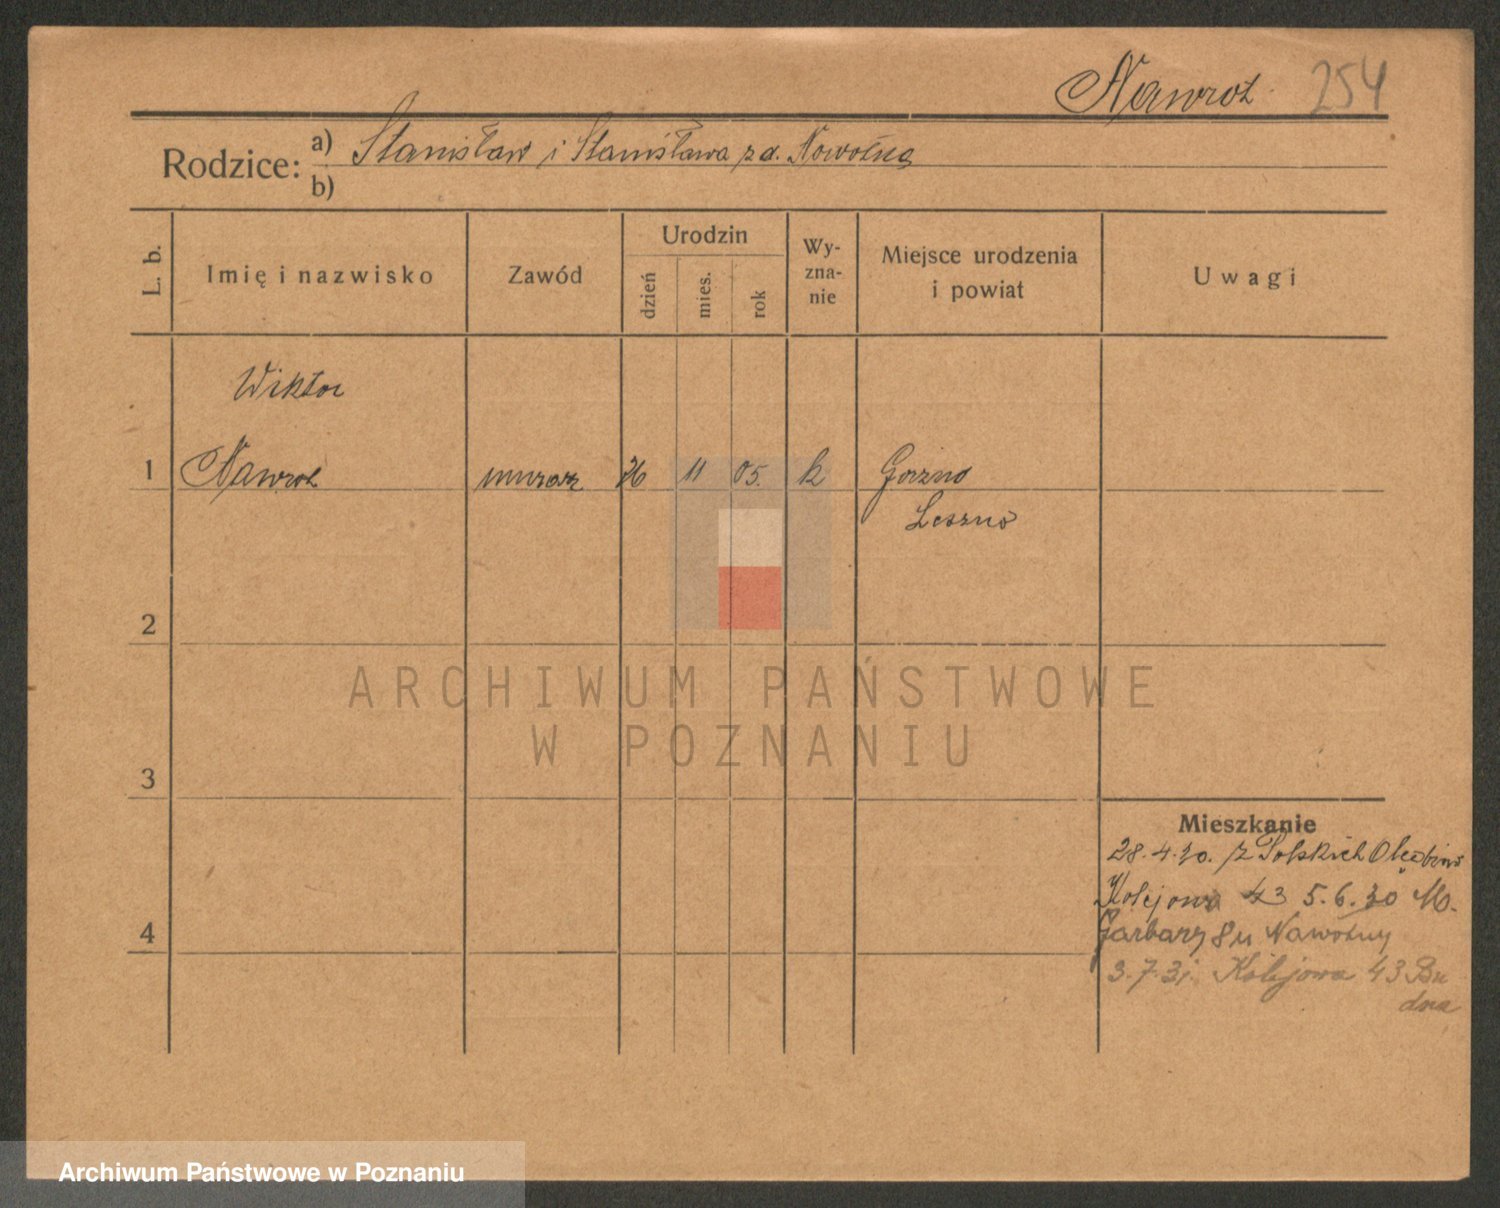 Nawrot 254
Rodzice: a) Stanisław i Stanisława z d. Nowotna
b)
L. b.
Imię i nazwisko
Zawód
Urodzin
dzień
mies.
rok
Wy-
zna-
nie
Miejsce urodzenia
i powiat
Uwagi
Wiktor
1 Nawrot murarz 26 11 05. k
Leszno
2
3
4
Mieszkanie
28.4.30. z Polskich
Kolejowa 43 5.6.30 M.
Garbary 8 u Nawotny
3.7.31. Kolejowa 43
ARCHIWUM PAŃSTWOWE
W POZNANIU
Archiwum Państwowe w Poznaniu